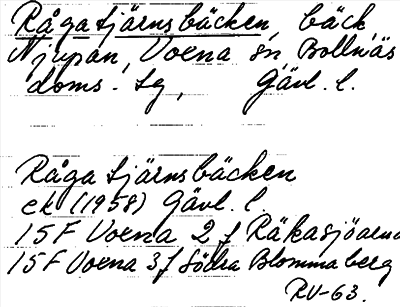 Rågatjärnsbäcken, bäck
Njupån, Voxna sn Bollnäs
doms. sg, Gävl. l.
Rågatjärnsbäcken
ek (1958) Gävl. l.
15F Voxna 2 f Räkasjöarna
15F Voxna 3f Södra Blommaberg
RV-63.